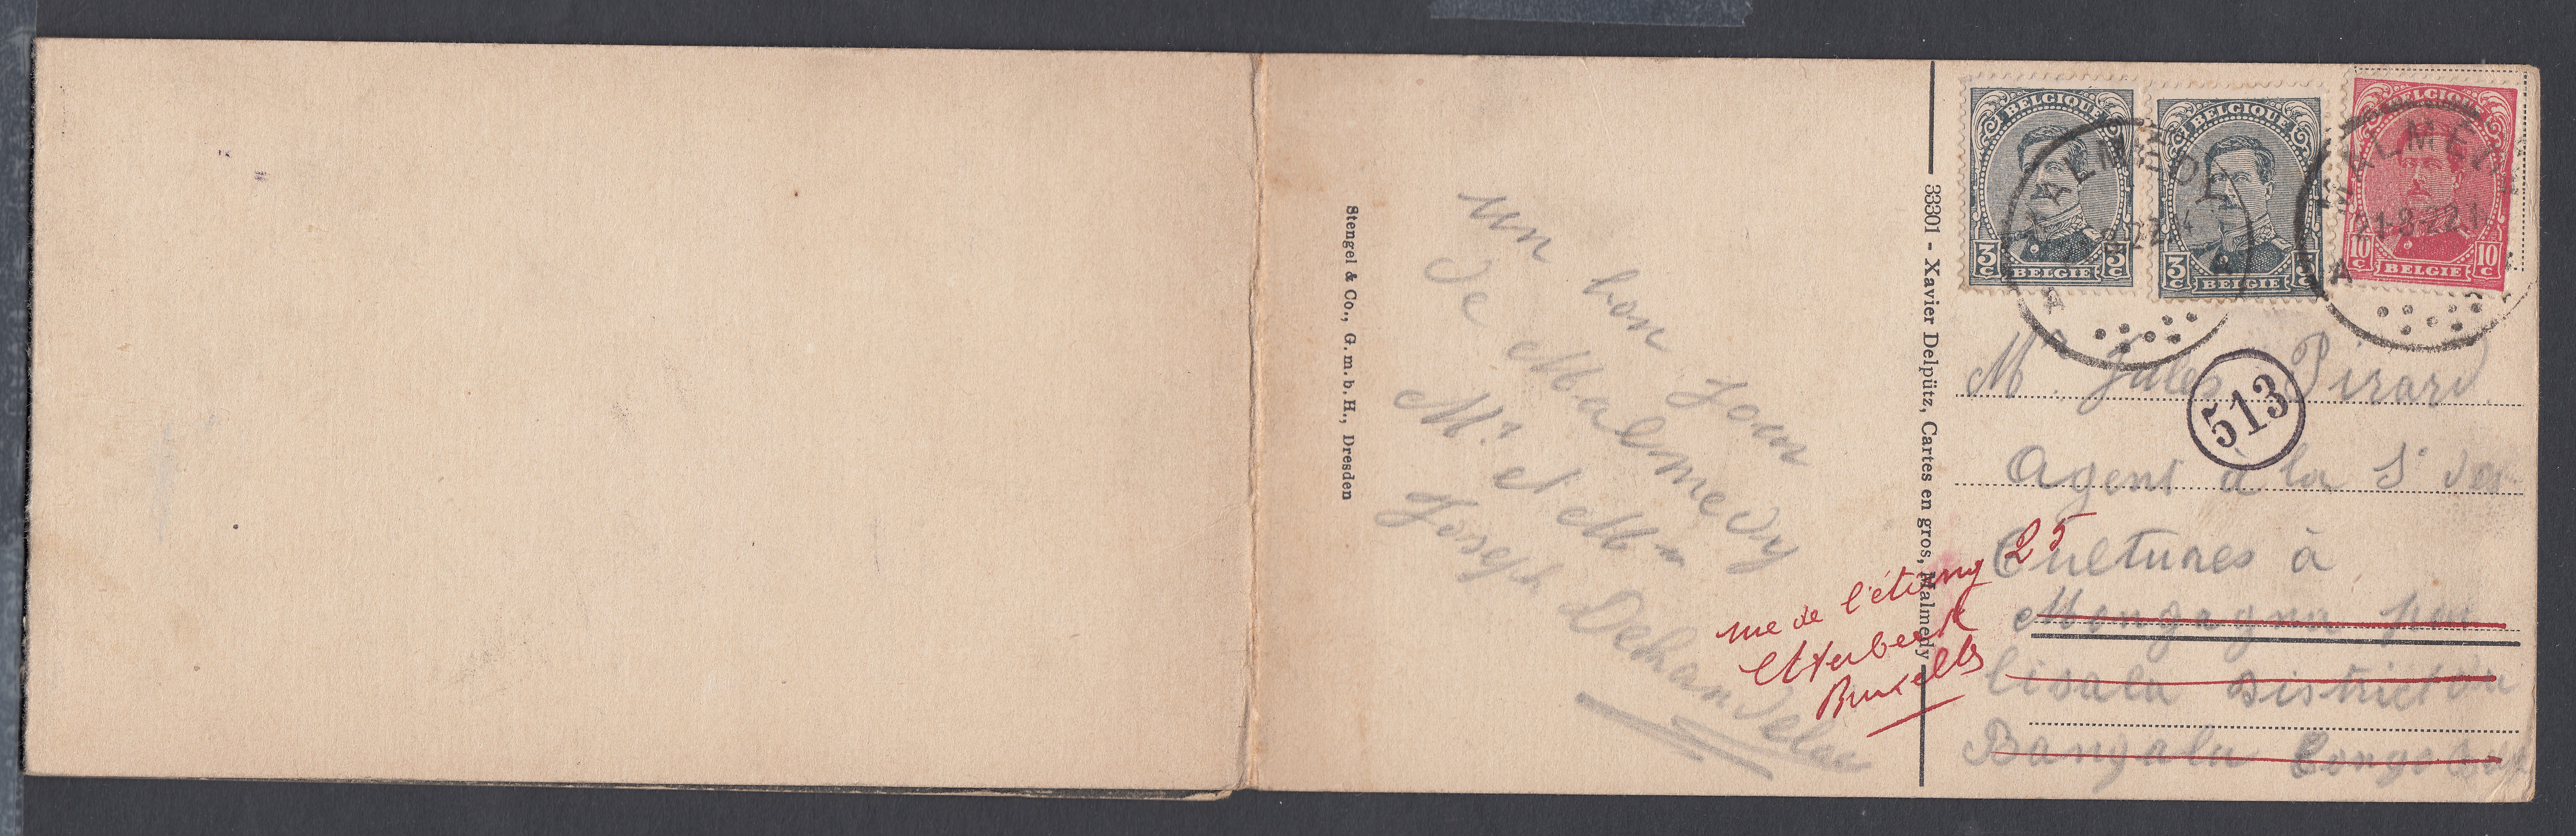 Stengel & Co., G.m.b.H., Dresden
un bon jour
de Malmedy
Mr et Mme
Joseph
33301 - Xavier Delpütz, Cartes en gros, Malmedy
BELGIQUE
3 C 3 C
BELGIE
BELGIQUE
3 C 3 C
BELGIE
BELGIQUE
10 C 10 C
BELGIE
MALMEDY
MALMEDY
A
513
Mr. Jules Pirard
Agent à la Sté des
Cultures à
Mongagna par
Lisala District du
Bangala Congo
rue de l'étang 25
Etterbeek
Bruxelles